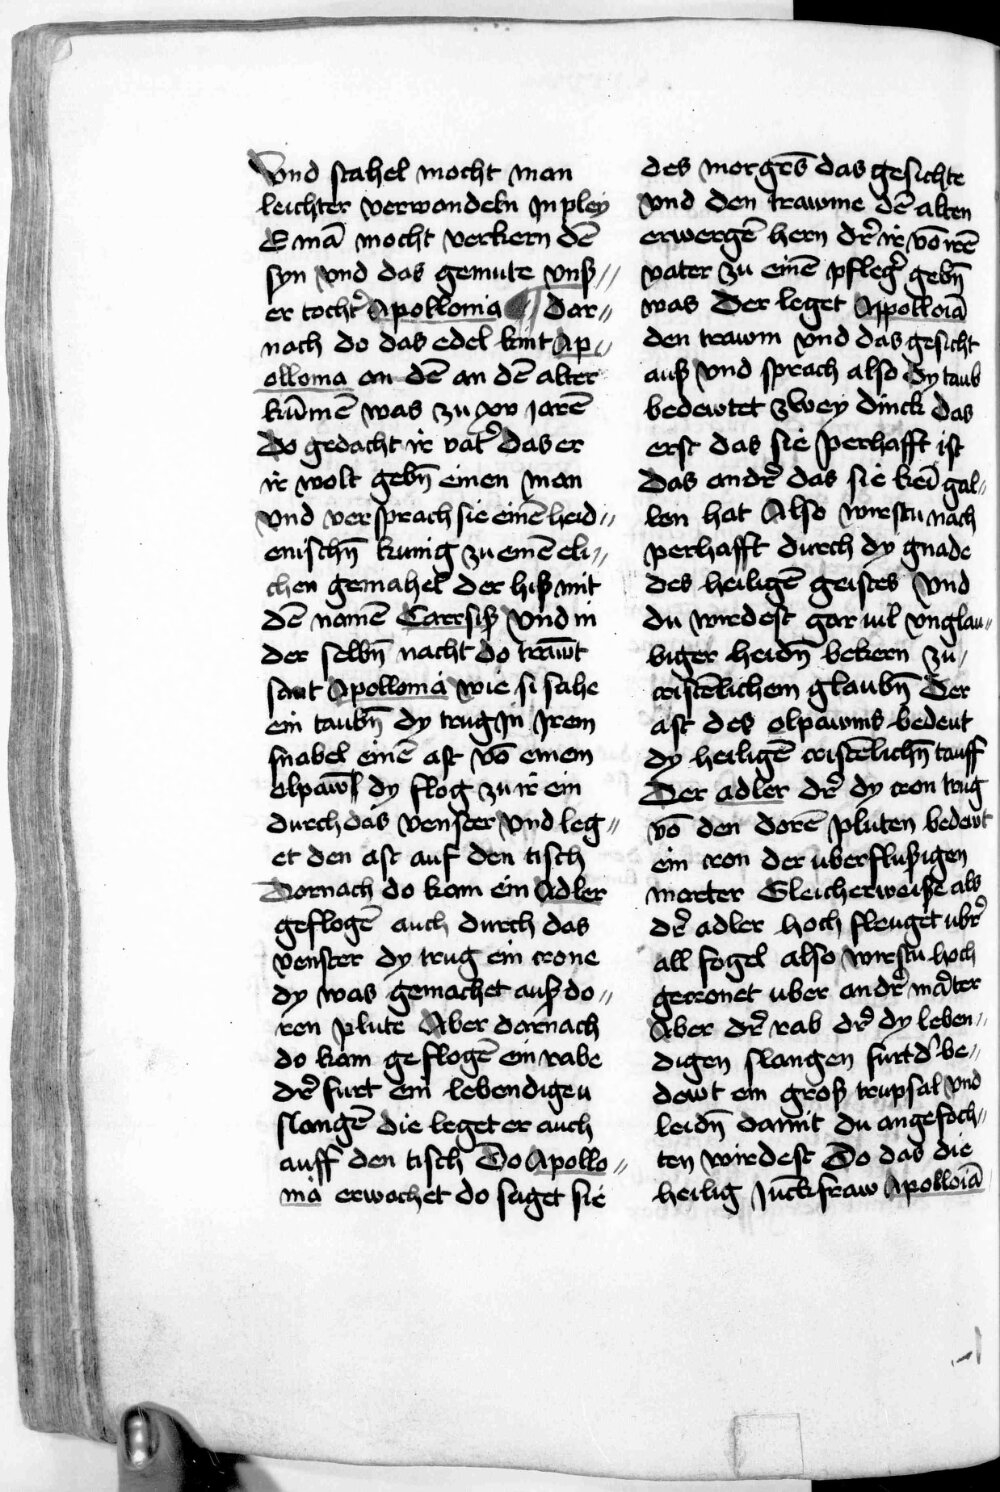 Vnd stahel mocht man
leichter verwandeln Jn pley
E mā mocht verkern dē
syn vnd das gemute vnß//
er tocht᷑ Apollonia Dar//
nach do das edel kint Ap//
ollonia an dē an dē alter
kūmē was zu xv jarē
Do gedacht ir vat᷑ das er
ir wolt gebn̄ einen man
Vnd versprach sie einē heid//
enischn̄ kunig zu einē eli//
chen gemahel der hiß mit
dē namē Carrsiß Vnd in
der selbn̄ nacht do trawt
sant Apollonia wie si sahe
ein taubn̄ dy trug Jn Jrem
snabel einē ast vō einem
olpawm̄ dy flog zu ir ein
durch das venster Vnd leg//
et den ast auf den tisch
Dornach do kam ein Adler
geflogē auch durch das
venster dy trug ein crone
dy was gemachet auß do//
ren plute Aber dornach
do kam geflogē ein rabe
dr᷑ furt ein lebendigen
slangē die leget er auch
auff den tisch Do Apollo//
nia erwachet do saget sie
des morgēs das gesichte
vnd den trawme dē alten
erwergē hern dr᷑ ir vō irē
vater zu einē pfleg᷑ gebn̄
was Der leget Appolloīa
den trawm vnd das gesicht
auß Vnd sprach also dy taub
bedewtet zwey dinck das
erst das sie perhafft ist
Das andr᷑ das sie keī gal//
len hat Also wirstu nach
perhafft durch dy gnade
des heiligē geistes Vnd
du wirdest gar uil vnglau//
biger heidn̄ bekern zu//
cristēlichem glaubn̄ Der
ast des olpawms bedeut
dy heiligē cristēlichn̄ tauff
Der adler dr᷑ dy cron trug
vō den dorē pluten bedewt
ein cron der uberflußigen
marter Gleicherweiße als
dr᷑ adler hoch fleuget ubr᷑
all fogel also wirstu hoch
gecronet uber andr᷑ mart᷑er
Aber dr᷑ rab dr᷑ dy leben//
digen slangen furt d᷑ be//
dewt ein groß trupsal vnd
leidn̄ damit du angefoch//
ten wirdest Do das die
heilig Junckfraw Apolloīa